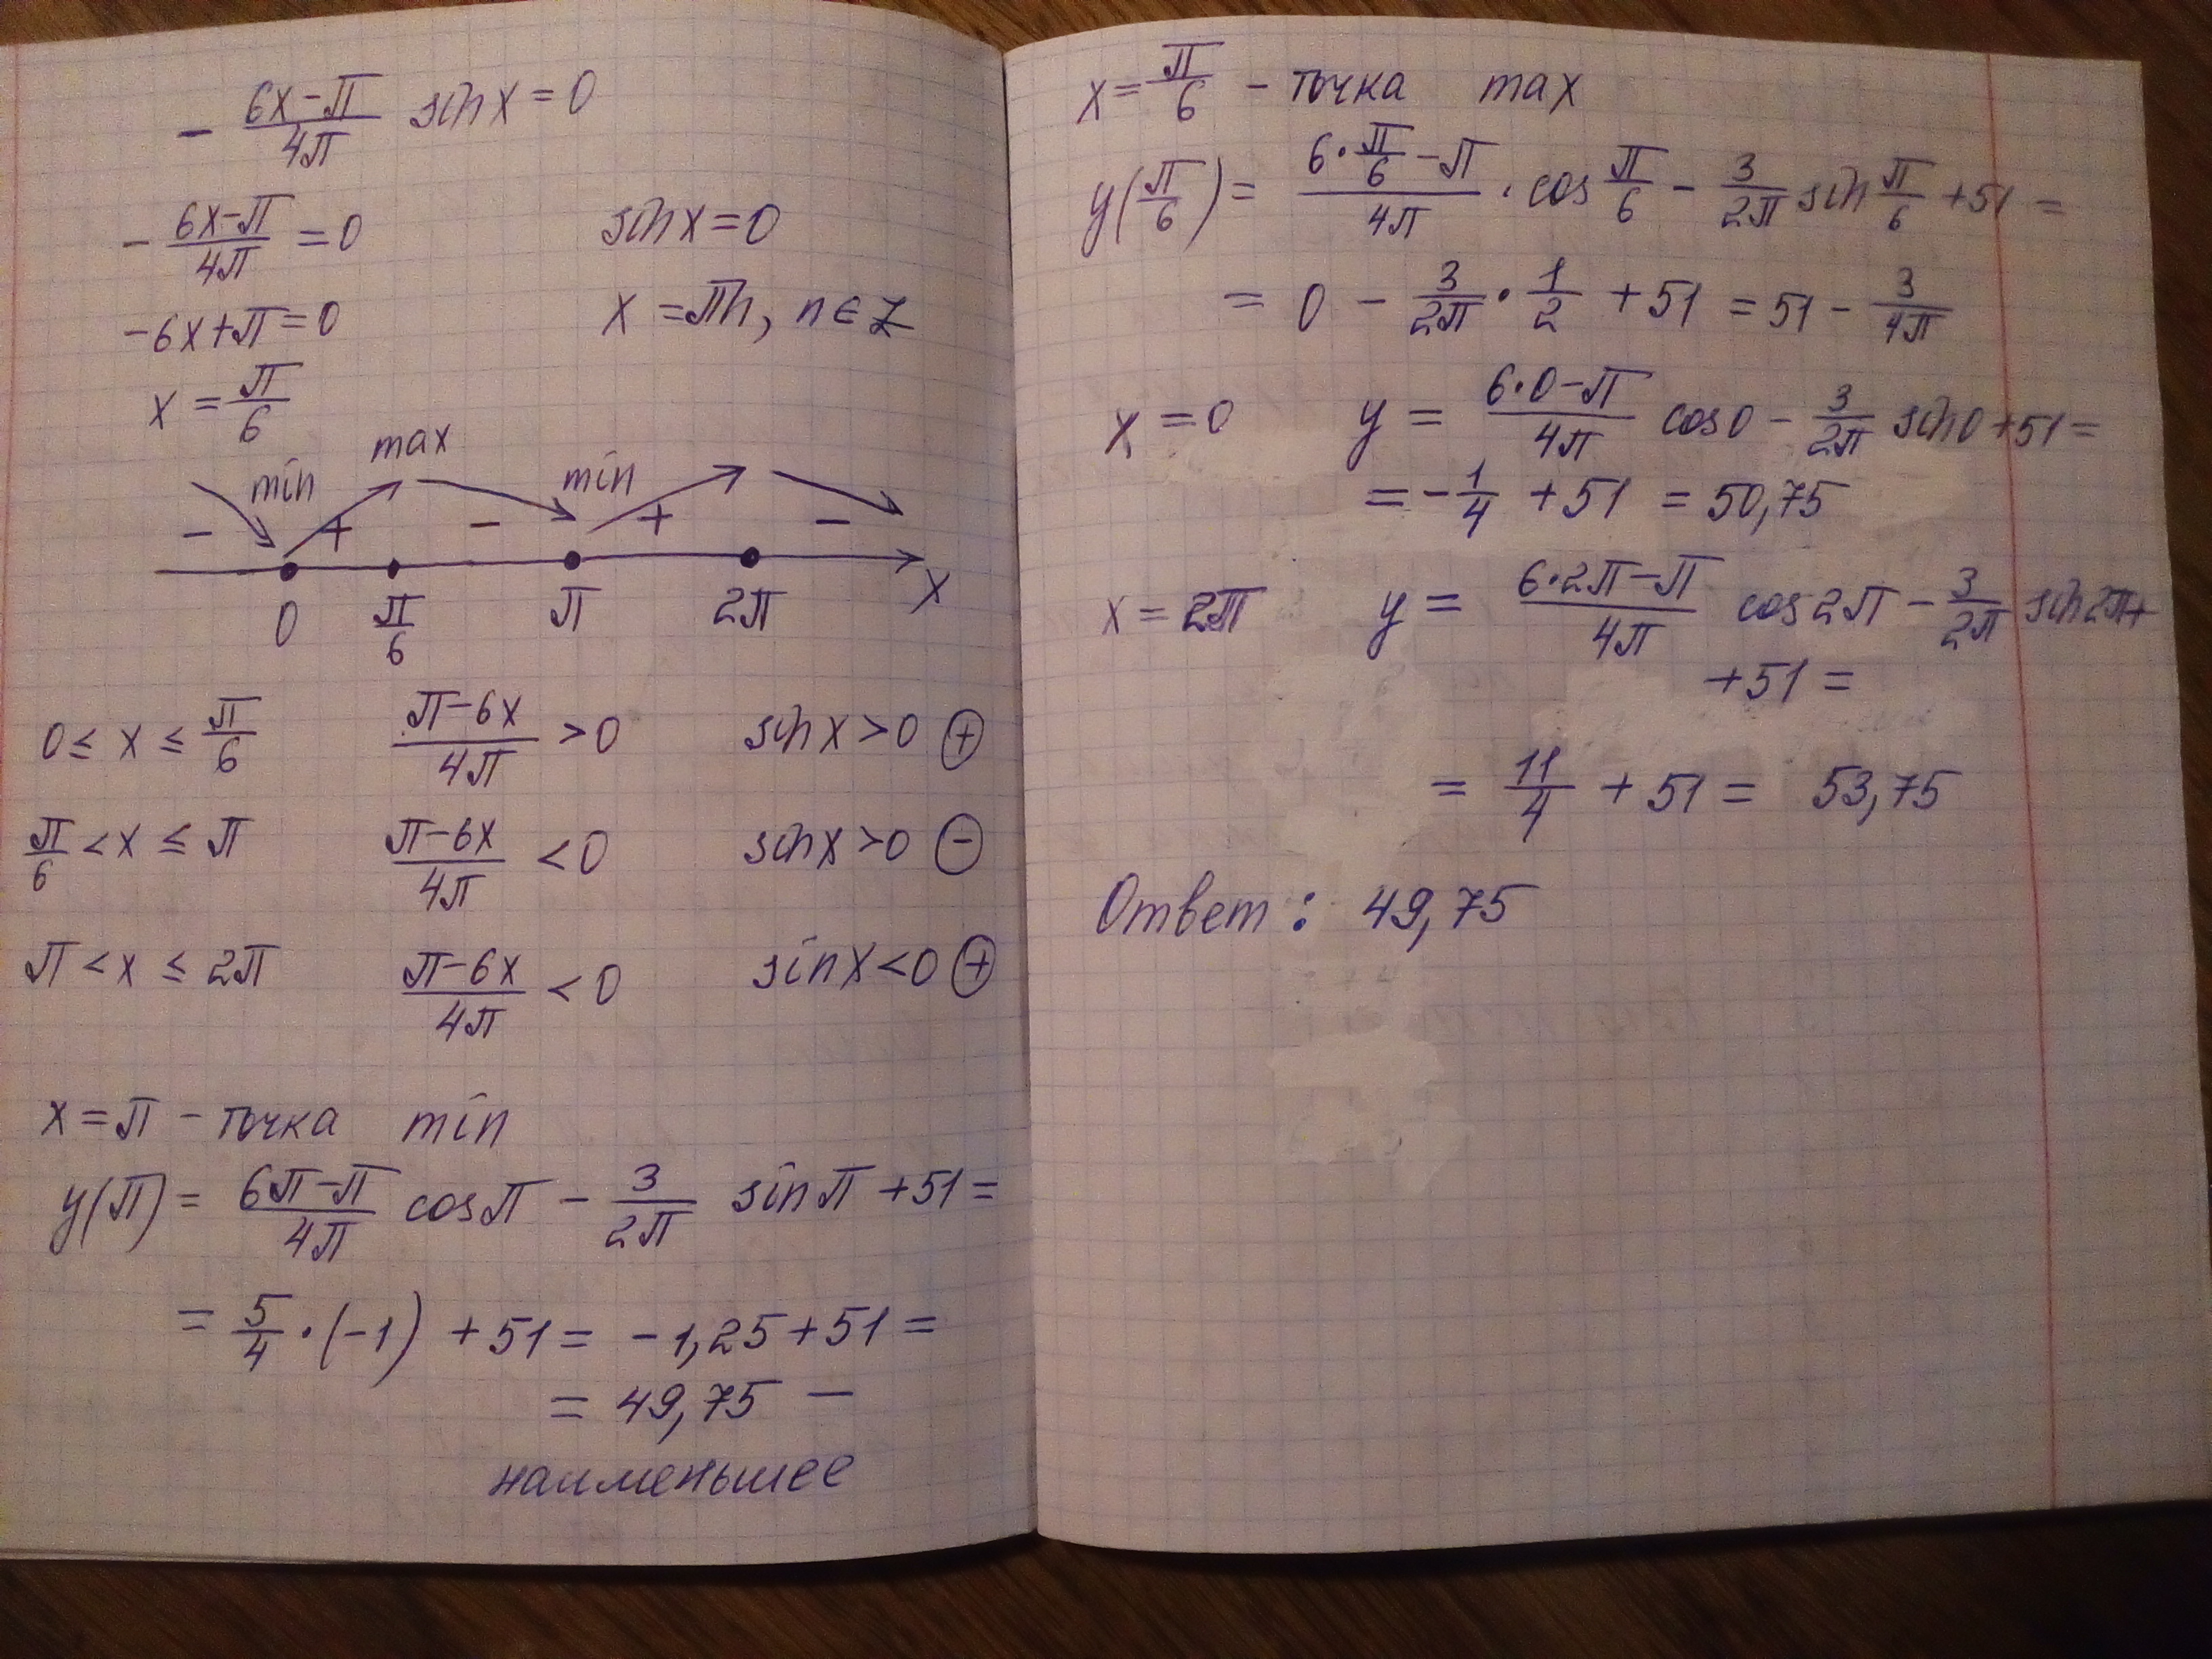 - (6x-π)/(4π) sin x = 0
- (6x-π)/(4π) = 0   sin x = 0
-6x+π=0   x = πn, n∈Z
x = π/6
min max min
- + - + -
0 π/6 π 2π x
0 ≤ x ≤ π/6   (π-6x)/(4π) > 0   sin x > 0 ⊕
π/6 < x ≤ π   (π-6x)/(4π) < 0   sin x > 0 ⊖
π < x ≤ 2π   (π-6x)/(4π) < 0   sin x < 0 ⊕
x = π - точка min
y(π) = (6π-π)/(4π) cos π - 3/(2π) sin π + 51 =
= 5/4 · (-1) + 51 = -1,25 + 51 =
= 49,75 —
наименьшее
x = π/6 - точка max
y(π/6) = (6·π/6-π)/(4π) · cos π/6 - 3/(2π) sin π/6 + 51 =
= 0 - 3/(2π) · 1/2 + 51 = 51 - 3/(4π)
x = 0   y = (6·0-π)/(4π) cos 0 - 3/(2π) sin 0 + 51 =
= -1/4 + 51 = 50,75
x = 2π   y = (6·2π-π)/(4π) cos 2π - 3/(2π) sin 2π +
+ 51 =
= 11/4 + 51 = 53,75
Ответ: 49,75